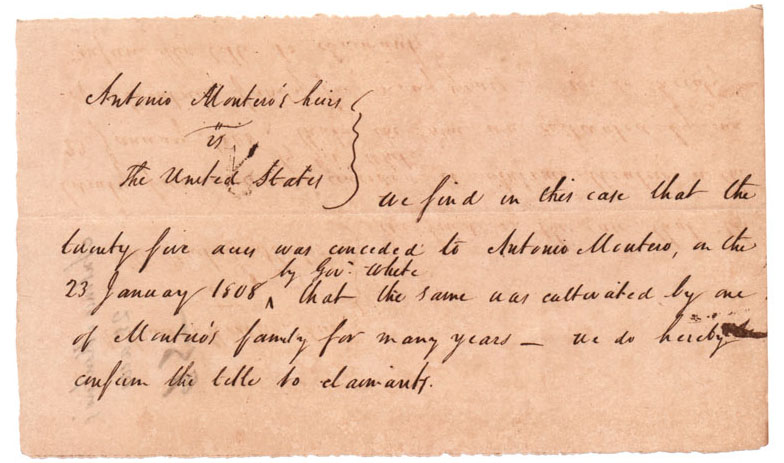 Antonio Montero's heirs
vs
The United States
We find in this case that the
twenty five acres was conceded to Antonio Montero, on the
by Govr. White
23 January 1808, that the same was cultivated by one
of Montero's family for many years — we do hereby
confirm the title to claimants.